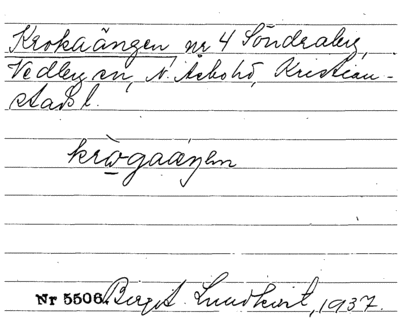 Krokaängen, nr 4 Söndraberg,
Vedby sn, N. Åsbo hd, Kristian-
stads l.
krògaäŋen
Nr 5506. Birgit Lundkvist, 1937.